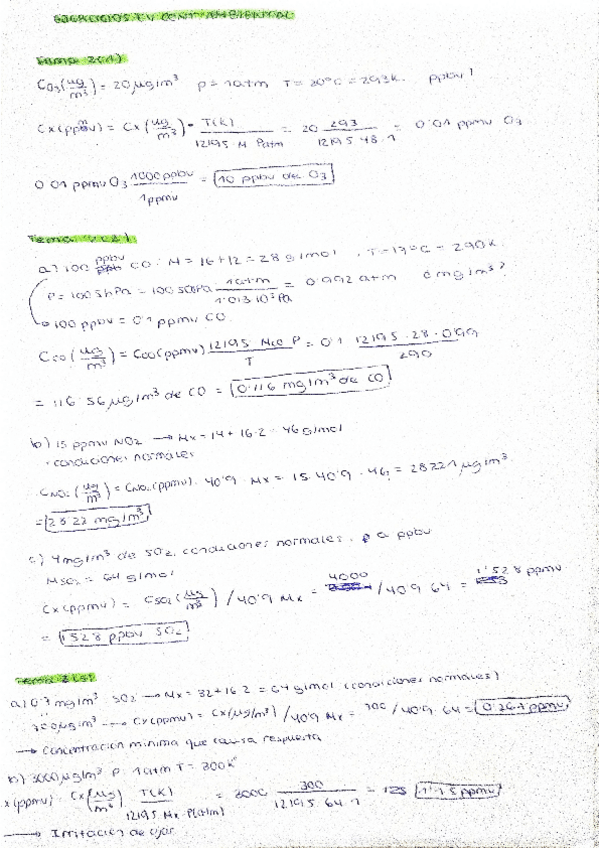 EJERCICIOS EV CONT. AMBIENTAL
Tema 2(1)
CO3 (µg/m³) = 20 µg/m³ P = 1 atm T = 20ºC = 293K. ppbv?
Cx(ppmv) = Cx (µg/m³) · T(K) / 12195 · M · Patm = 20 293 / 12195 · 48 · 1 = 0'01 ppmv O3
0'01 ppmv O3 1000 ppbv / 1 ppmv = 10 ppbv de O3
Tema 2(2)
a) 100 ppbv CO: M = 16+12 = 28 g/mol , T = 17ºC = 290K.
P = 1005 hPa = 100500 Pa 1 atm / 1'013·10⁵ Pa = 0'992 atm ¿mg/m³?
100 ppbv = 0'1 ppmv CO.
CCO (µg/m³) = CCO(ppmv) 12195 MCO P / T = 0'1 12195 · 28 · 0'99 / 290
= 116'56 µg/m³ de CO = 0'116 mg/m³ de CO
b) 15 ppmv NO2 → Mx = 14 + 16·2 = 46 g/mol
· condiciones normales
CNO2 (µg/m³) = CNO2 (ppmv) · 40'9 · Mx = 15 · 40'9 · 46 = 28221 µg/m³
= 28'22 mg/m³
c) 4 mg/m³ de SO2, condiciones normales, a ppbv
MSO2 = 64 g/mol
Cx(ppmv) = CSO2 (µg/m³) / 40'9 Mx = 4000 / 40'9 64 = 1'528 ppmv
= 1528 ppbv SO2
Tema 2(5)
a) 0'7 mg/m³ SO2 → Mx = 32 + 16·2 = 64 g/mol (condiciones normales)
700 µg/m³ → Cx(ppmv) = Cx (µg/m³) / 40'9 Mx = 700 / 40'9 · 64 = 0'267 ppmv
→ Concentración mínima que causa respuesta
b) 3000 µg/m³ P = 1 atm T = 300K
x(ppmv) = Cx (µg/m³) T(K) / 12195 Mx · P(atm) = 3000 300 / 12195 · 64 · 1 = 1'15 ppmv
→ Irritación de ojos